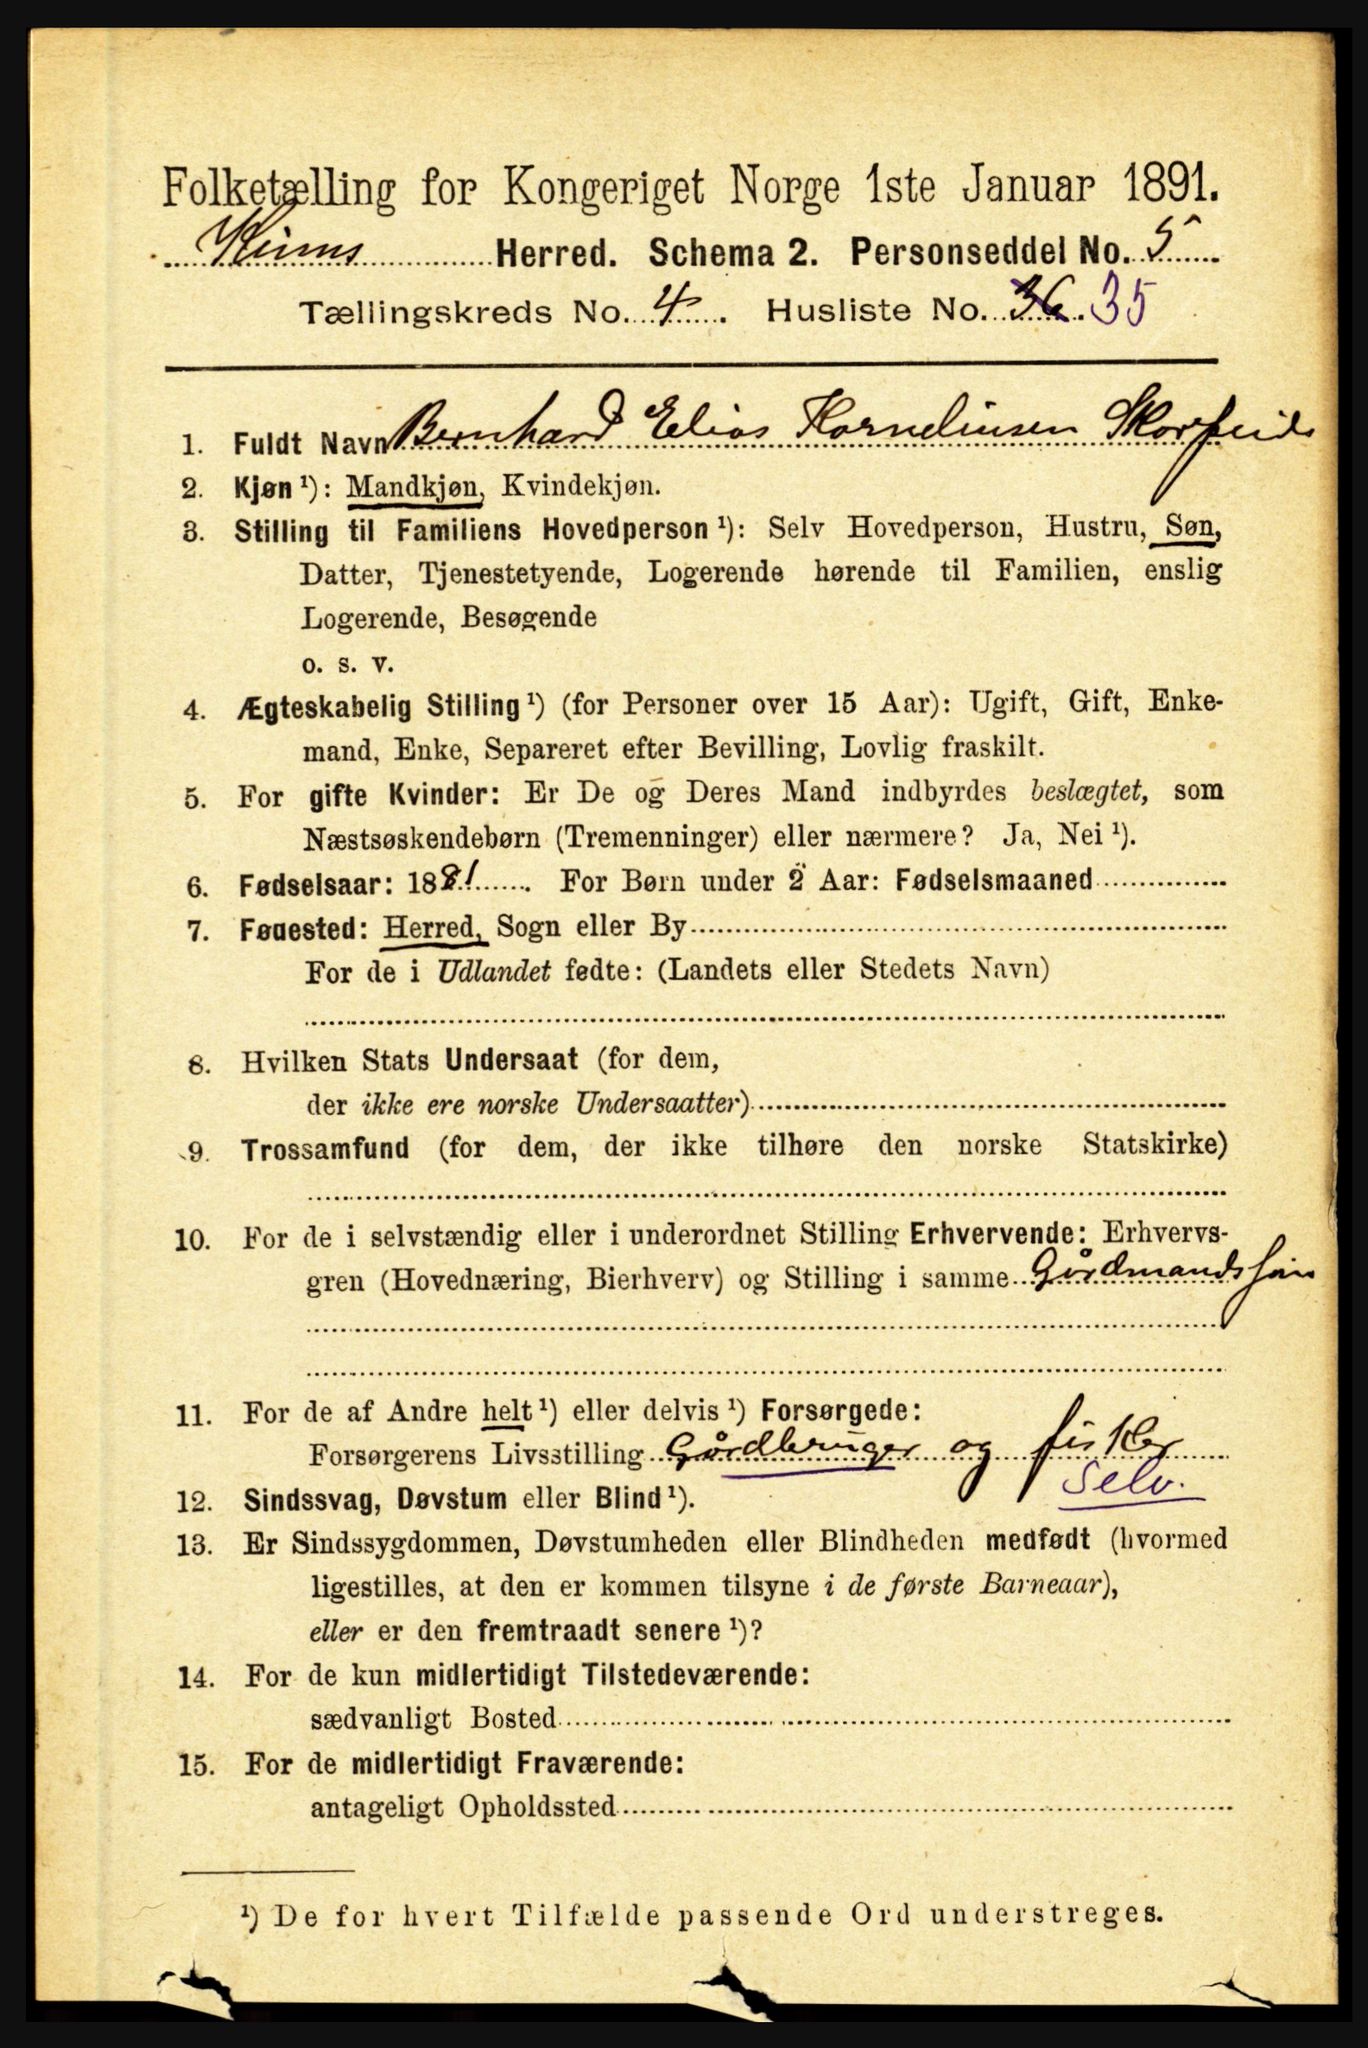 Folketælling for Kongeriget Norge 1ste Januar 1891.
Kinns Herred. Schema 2. Personseddel No. 5
Tællingskreds No. 4. Husliste No. 36. 35
1. Fuldt Navn Bernhard Elias Kornelinsen Skorpeids
2. Kjøn ¹): Mandkjøn, Kvindekjøn.
3. Stilling til Familiens Hovedperson ¹): Selv Hovedperson, Hustru, Søn,
Datter, Tjenestetyende, Logerende hørende til Familien, enslig
Logerende, Besøgende
o. s. v.
4. Ægteskabelig Stilling ¹) (for Personer over 15 Aar): Ugift, Gift, Enke-
mand, Enke, Separeret efter Bevilling, Lovlig fraskilt.
5. For gifte Kvinder: Er De og Deres Mand indbyrdes beslægtet, som
Næstsøskendebørn (Tremenninger) eller nærmere? Ja, Nei ¹).
6. Fødselsaar: 1881. For Børn under 2 Aar: Fødselsmaaned
7. Fødested: Herred, Sogn eller By
For de i Udlandet fødte: (Landets eller Stedets Navn)
8. Hvilken Stats Undersaat (for dem,
der ikke ere norske Undersaatter)
9. Trossamfund (for dem, der ikke tilhøre den norske Statskirke)
10. For de i selvstændig eller i underordnet Stilling Erhvervende: Erhvervs-
gren (Hovednæring, Bierhverv) og Stilling i samme Gårdmandssøn
11. For de af Andre helt ¹) eller delvis ¹) Forsørgede:
Forsørgerens Livsstilling Gårdbruger og fisker
Selv.
12. Sindssvag, Døvstum eller Blind ¹).
13. Er Sindssygdommen, Døvstumheden eller Blindheden medfødt (hvormed
ligestilles, at den er kommen tilsyne i de første Barneaar),
eller er den fremtraadt senere ¹)?
14. For de kun midlertidigt Tilstedeværende:
sædvanligt Bosted
15. For de midlertidigt Fraværende:
antageligt Opholdssted
¹) De for hvert Tilfælde passende Ord understreges.